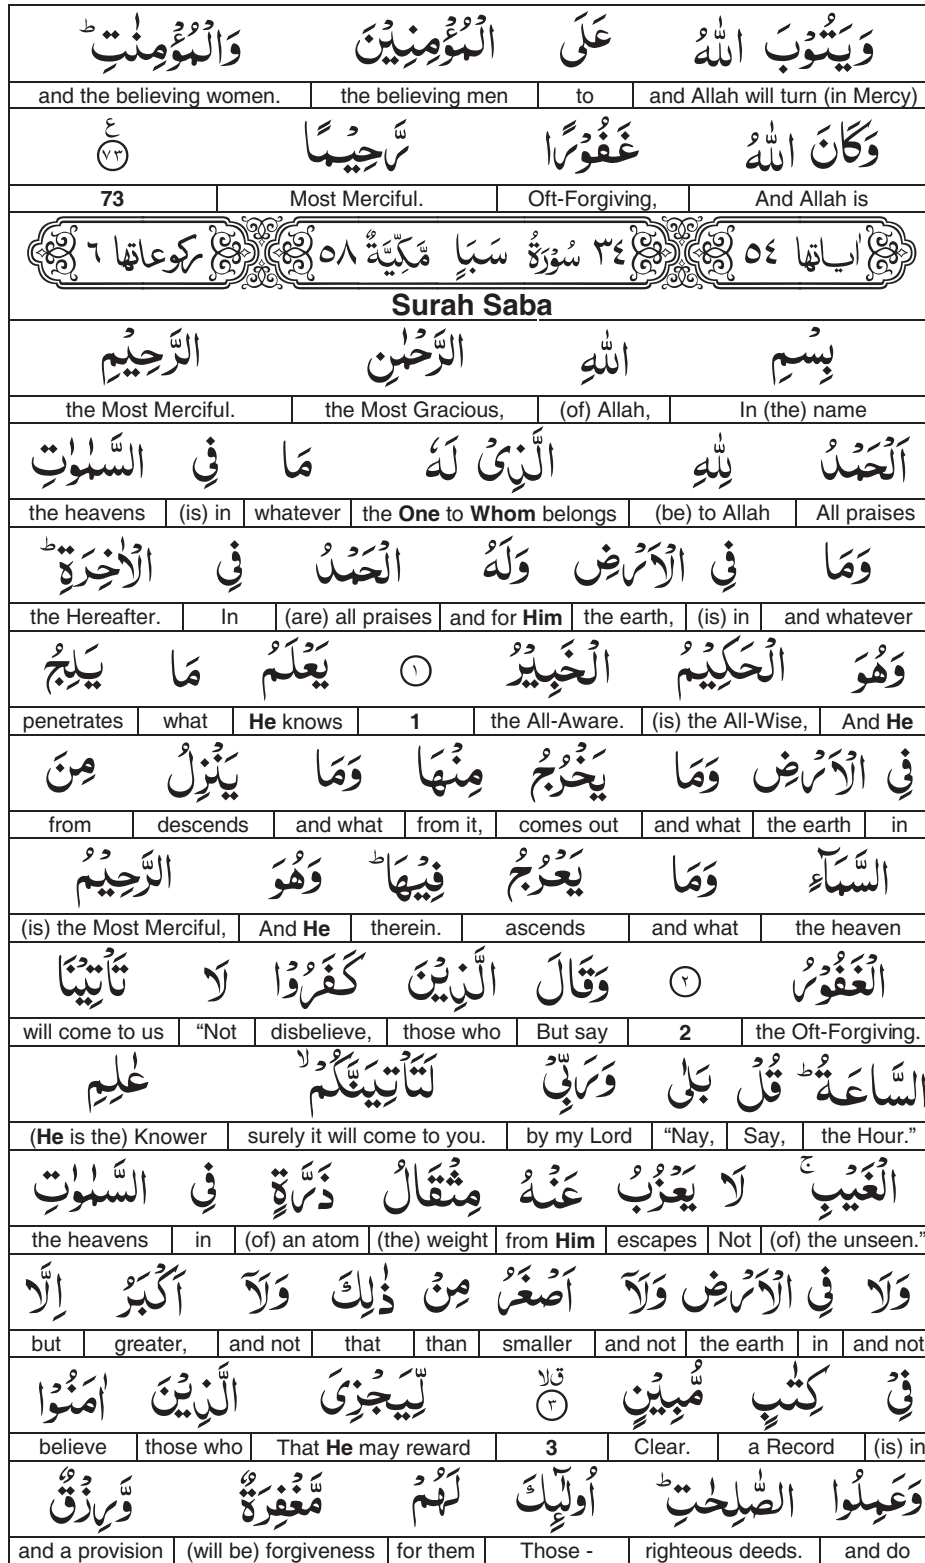 وَيَتُوۡبَ اللّٰهُ عَلَى الۡمُؤۡمِنِيۡنَ وَالۡمُؤۡمِنٰتِ ؕ
and the believing women. | the believing men | to | and Allah will turn (in Mercy)
وَكَانَ اللّٰهُ غَفُوۡرًا رَّحِيۡمًا ع ٧٣
73 | Most Merciful. | Oft-Forgiving, | And Allah is
اٰیاتها ٥٤ ٣٤ سُوۡرَةُ سَبَاٍ مَّكِّيَّةٌ ٥٨ ركوعاتها ٦
Surah Saba
بِسۡمِ اللّٰهِ الرَّحۡمٰنِ الرَّحِيۡمِ
the Most Merciful. | the Most Gracious, | (of) Allah, | In (the) name
اَلۡحَمۡدُ لِلّٰهِ الَّذِىۡ لَهٗ مَا فِى السَّمٰوٰتِ
the heavens | (is) in | whatever | the One to Whom belongs | (be) to Allah | All praises
وَمَا فِى الۡاَرۡضِ وَلَهُ الۡحَمۡدُ فِى الۡاٰخِرَةِ ؕ
the Hereafter. | In | (are) all praises | and for Him | the earth, | (is) in | and whatever
وَهُوَ الۡحَكِيۡمُ الۡخَبِيۡرُ ١ يَعۡلَمُ مَا يَلِجُ
penetrates | what | He knows | 1 | the All-Aware. | (is) the All-Wise, | And He
فِى الۡاَرۡضِ وَمَا يَخۡرُجُ مِنۡهَا وَمَا يَنۡزِلُ مِنَ
from | descends | and what | from it, | comes out | and what | the earth | in
السَّمَآءِ وَمَا يَعۡرُجُ فِيۡهَا ؕ وَهُوَ الرَّحِيۡمُ
(is) the Most Merciful, | And He | therein. | ascends | and what | the heaven
الۡغَفُوۡرُ ٢ وَقَالَ الَّذِيۡنَ كَفَرُوۡا لَا تَاۡتِيۡنَا
will come to us | “Not | disbelieve, | those who | But say | 2 | the Oft-Forgiving.
السَّاعَةُ ؕ قُلۡ بَلٰى وَرَبِّىۡ لَتَاۡتِيَنَّكُمۡ ۙ عٰلِمِ
(He is the) Knower | surely it will come to you. | by my Lord | “Nay, | Say, | the Hour.”
الۡغَيۡبِ ۚ لَا يَعۡزُبُ عَنۡهُ مِثۡقَالُ ذَرَّةٍ فِى السَّمٰوٰتِ
the heavens | in | (of) an atom | (the) weight | from Him | escapes | Not | (of) the unseen.”
وَلَا فِى الۡاَرۡضِ وَلَاۤ اَصۡغَرُ مِنۡ ذٰلِكَ وَلَاۤ اَكۡبَرُ اِلَّا
but | greater, | and not | that | than | smaller | and not | the earth | in | and not
فِىۡ كِتٰبٍ مُّبِيۡنٍ ٣ ۙق لِّيَجۡزِىَ الَّذِيۡنَ اٰمَنُوۡا
believe | those who | That He may reward | 3 | Clear. | a Record | (is) in
وَعَمِلُوا الصّٰلِحٰتِ ؕ اُولٰٓٮِٕكَ لَهُمۡ مَّغۡفِرَةٌ وَّرِزۡقٌ
and a provision | (will be) forgiveness | for them | Those - | righteous deeds. | and do